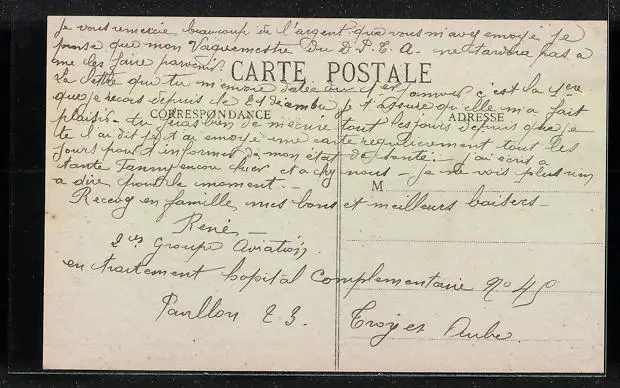 Je vous remercie beaucoup de l'argent que vous m'avez envoyé je
pense que mon Vaguemestre du D.P.E.A. ne tardera pas a
me les faire parvenir.
CARTE POSTALE
La lettre que tu m'envoie datée du 1er janvier c'est la 1ere
que je recois depuis le 24 décembre, je t'assure qu'elle m'a fait
CORRESPONDANCE
ADRESSE
plaisir - tu feras bien de m'ecrire tout les jours depuis que je
te l'ai dit je t'ai envoyé une carte regulierement tout les
jours pour t'informer de mon état de santé. j'ai ecris a
tante Fanny encore hier et a nous - je ne vois plus rien
M
a dire pour le moment. -
Recevez en famille mes bons et meilleurs baisers -
René -
2me Groupe Aviation
en traitement hopital Complementaire No 45
Pavillon E 3.
Troyes Aube.